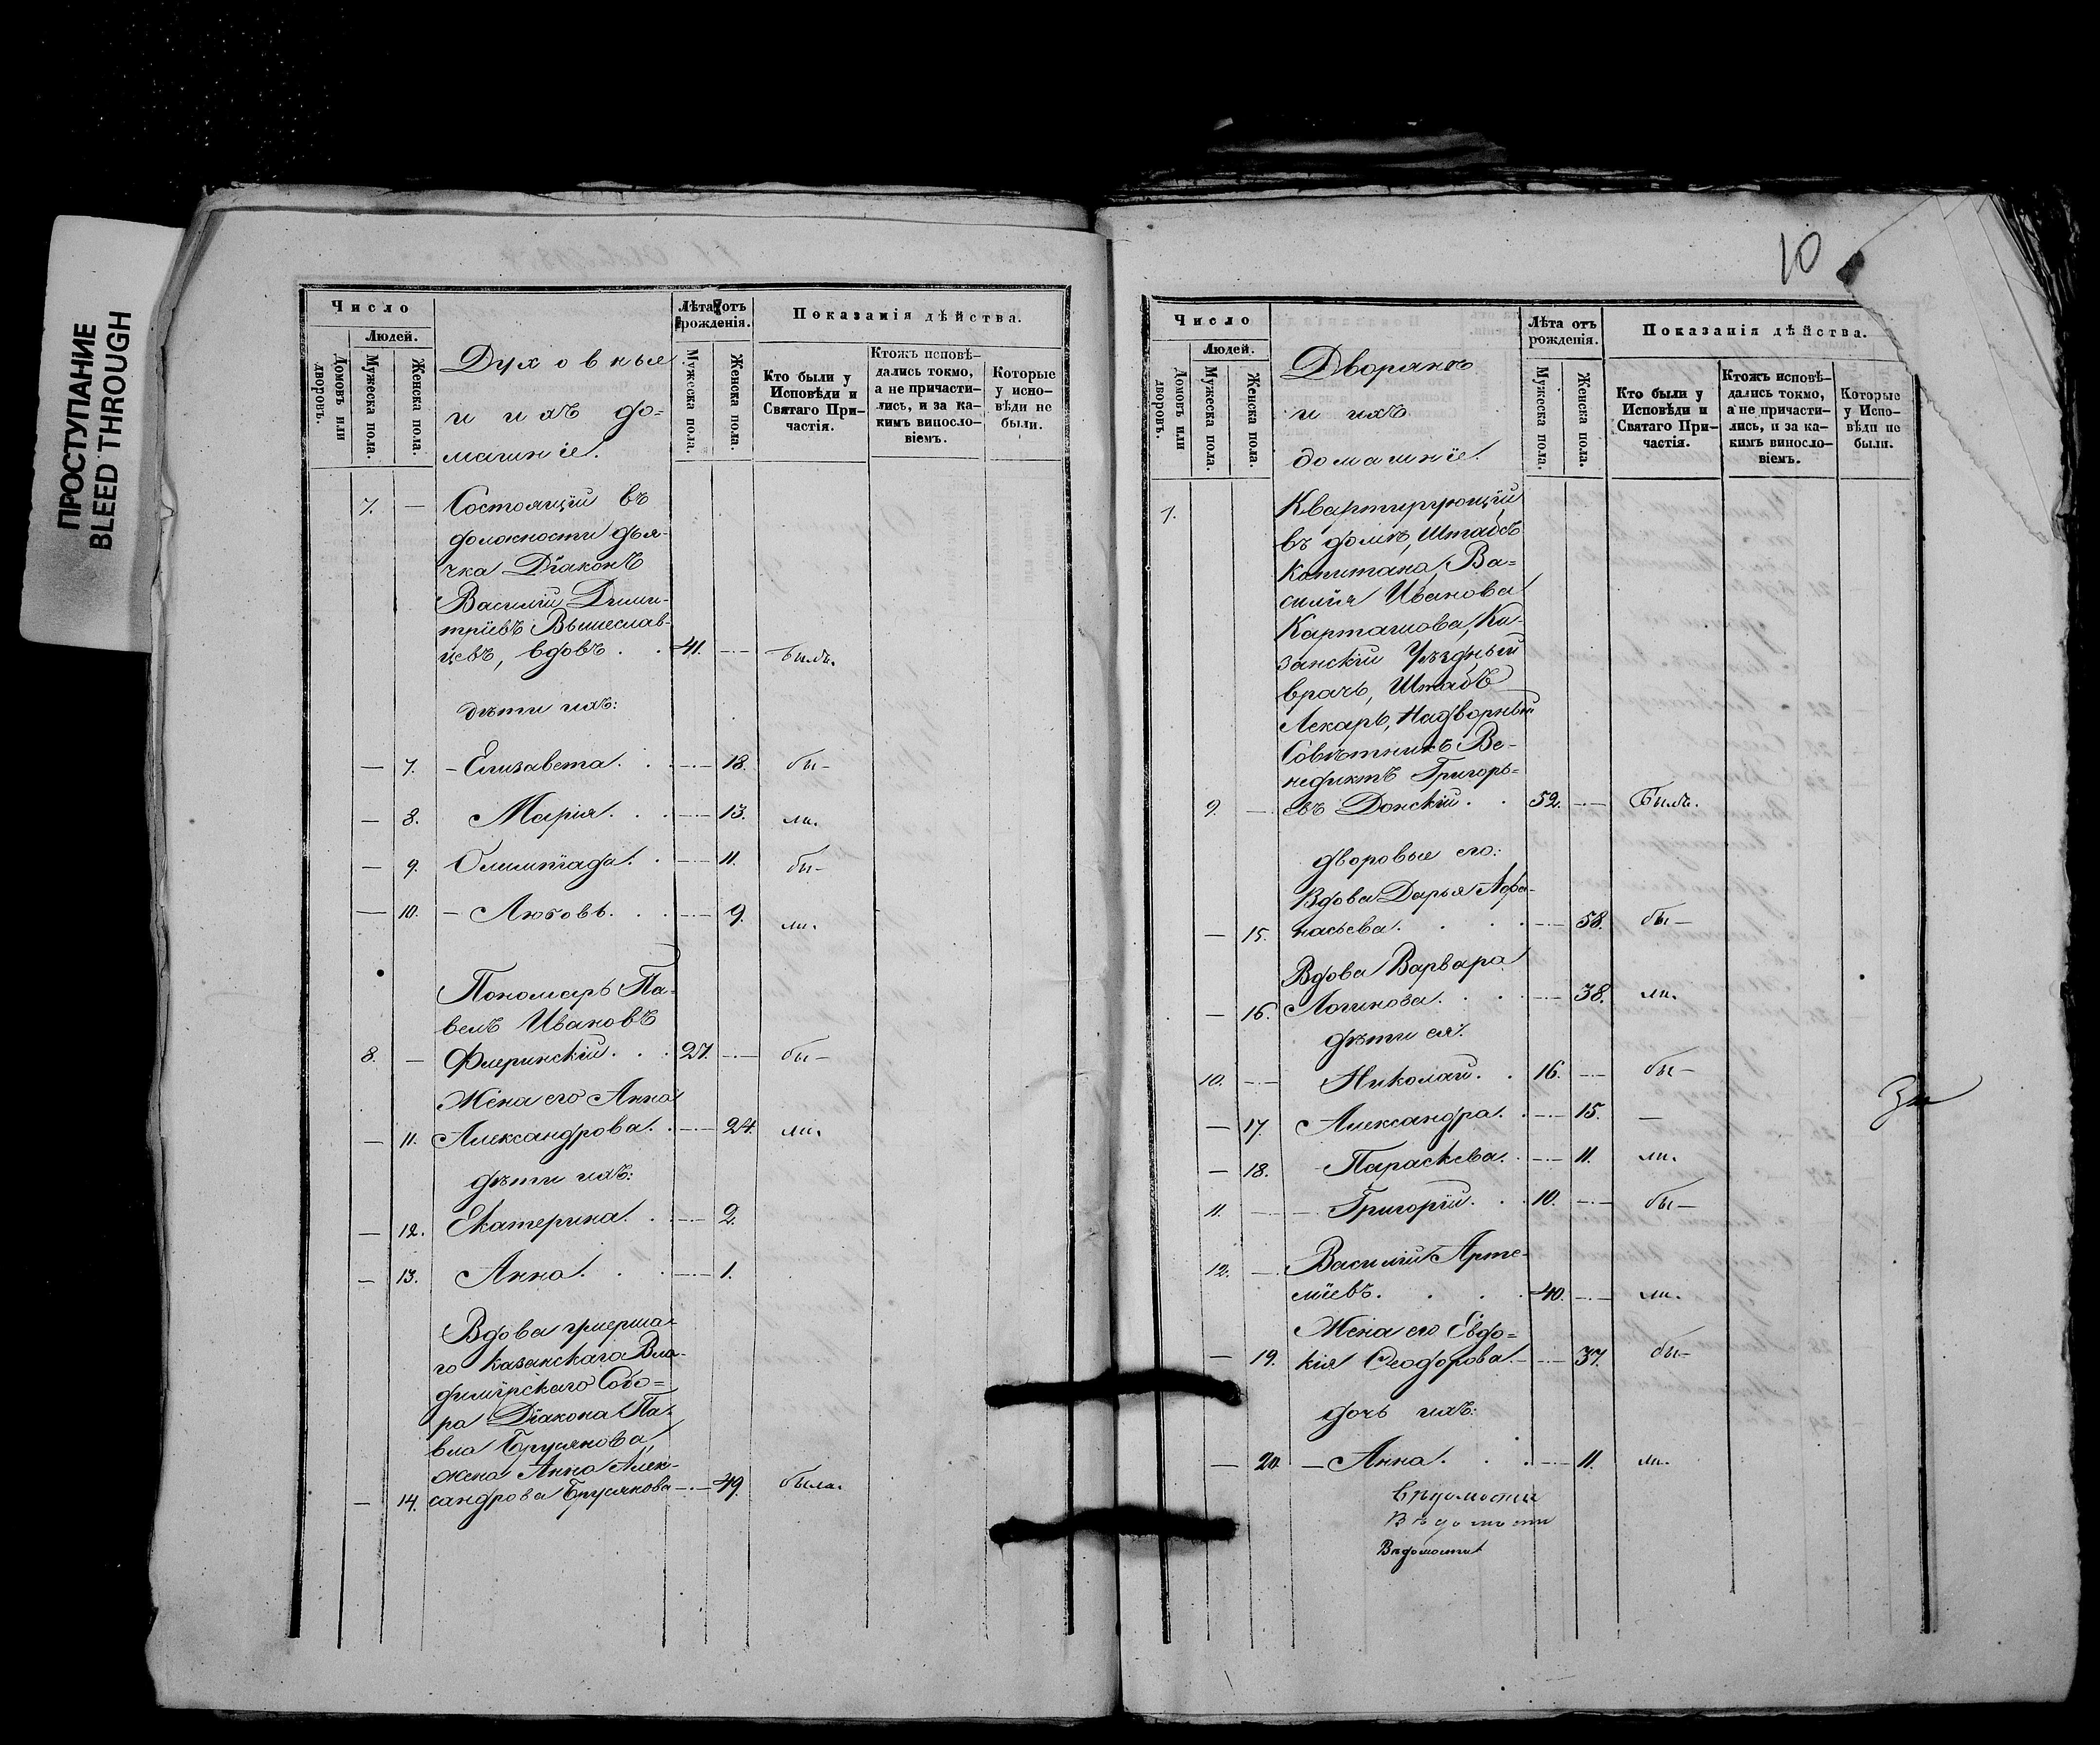 ПРОСТУПАНИЕ
BLEED THROUGH
Число
Людей.
Домовъ или дворовъ.
Мужеска пола.
Женска пола.
Духовные
и ихъ до=
машніе.
Лѣта отъ рожденія.
Мужеска пола.
Женска пола.
Показанія дѣйства.
Кто были у Исповѣди и Святаго Причастія.
Ктожъ исповѣдались токмо, а не причастились, и за какимъ винословіемъ.
Которые у исповѣди не были.
7. — Состоящій въ
должности дья-
чка Діаконъ
Василій Дими-
тріевъ Вышеслав-
цевъ, вдовъ . . 41. — былъ.
дѣти ихъ:
— 7. — Елизавета . . — 18. бы-
— 8. Марія . . . — 13. ли.
— 9. Олимпіада . . — 11. бы-
— 10. — Любовь . . . — 9. ли.
Пономарь Па-
велъ Ивановъ
8. — Флеринскій . . . 27. — бы-
Жена его Анна
— 11. Александрова . . — 24. ли.
дѣти ихъ:
— 12. Екатерина . . — 2.
— 13. Анна . . . — 1.
Вдова умерша-
го Казанскаго Вла-
димірскаго Собо=
ра Діакона Па-
вла Бруснянова
жена Анна Алек-
— 14. сандрова — 49. была.
10
Число
Людей.
Домовъ или дворовъ.
Мужеска пола.
Женска пола.
Дворяне
и ихъ
домашніе.
Лѣта отъ рожденія.
Мужеска пола.
Женска пола.
Показанія дѣйства.
Кто были у Исповѣди и Святаго Причастія.
Ктожъ исповѣдались токмо, а не причастились, и за какимъ винословіемъ.
Которые у Исповѣди не были.
1. Квартирующій
въ домѣ, Штабсъ
Капитана Ва=
силія Иванова
Карташова, Ка-
занскій Уѣздный
врачъ, Штабъ
Лекарь, Надворный
Совѣтникъ Ве-
недиктъ Григорь=
9. — евъ Донскій . . 52. — Былъ.
дворовые его:
Вдова Дарья Афа-
— 15. насьева . . . — 58. бы-
Вдова Варвара
— 16. Логинова . . . — 38. ли.
дѣти ея:
10. — Николай . . 16. — бы-
— 17. Александра . . — 15. —
— 18. Параскева . . — 11. ли.
11. — Григорій . . . 10. — бы-
12. — Василій Арте-
міевъ . . . . 40. — ли.
Жена его Евдо=
— 19. кія Ѳеодорова . — 37. бы-
дочь ихъ:
— 20. — Анна . . . — 11. ли.
Вѣдомости
Вѣдомости
Вѣдомости